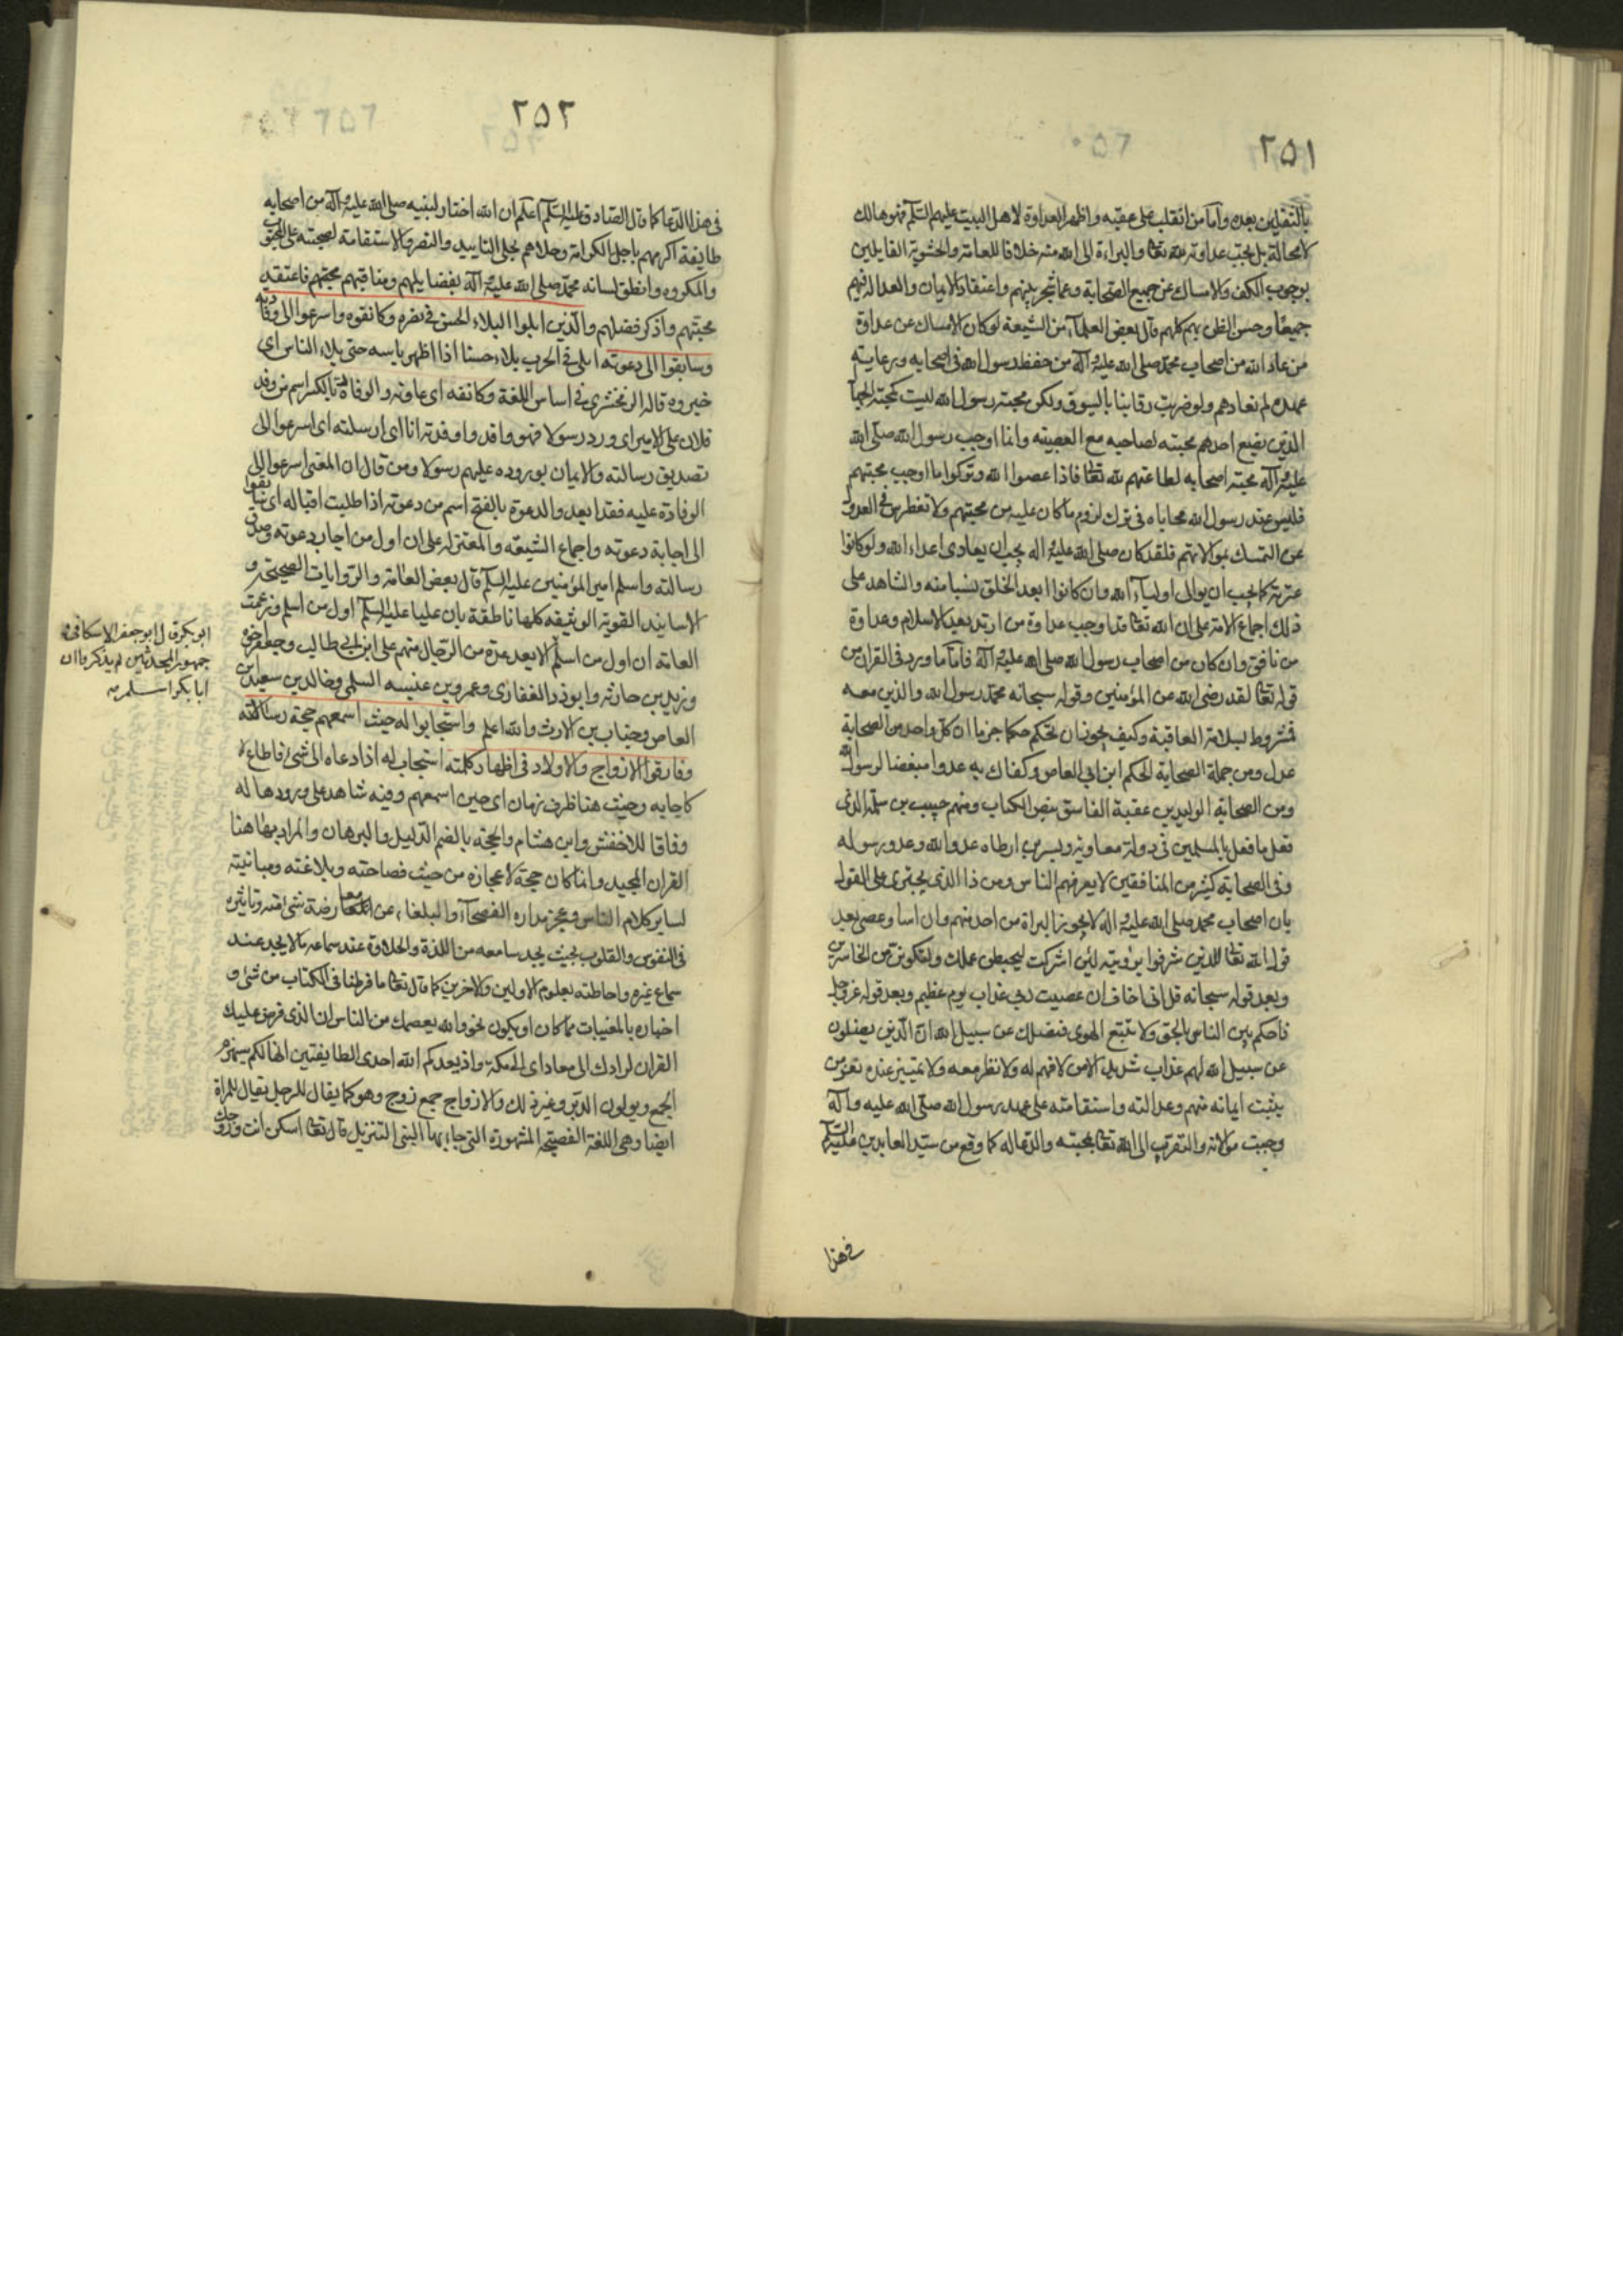 ٢٥١
بالثقلين بعده واما من انقلب على عقبه واظهر العداوة لاهل البيت عليهم السلم فهو هالك
لا محالة بل يجب عداوته لله تعا والبراءة الى الله منه خلافا للعامة والحشوية القايلين
بوجوب الكف والامساك عن جميع الصحابة وعما شجر بينهم واعتقاد الايمان والعدالة فيهم
جميعا وحسن الظن بهم كلهم قال بعض العلمآء من الشيعة لو كان الامساك عن عداوة
من عاد الله من اصحاب محمد صلى الله عليه وآله من حفظ رسول الله فى اصحابه ورعاية
عهده لم نعادهم ولو ضربت رقابنا بالسيوف ولكن محبة رسول الله ليست كمحبة الجهآ
الذين يضع احدهم محبته لصاحبه مع العصبية وانما اوجب رسول الله صلى الله
عليه وآله محبة اصحابه لطاعتهم لله تعا فاذا عصوا الله وتركوا ما اوجب محبتهم
فليس عند رسول الله محاباه فى ترك لزوم ما كان عليه من محبتهم ولا تغطرس فى العدول
عن التمسك بموالاتهم فلقد كان صلى الله عليه واله يجب ان يعادى اعداء الله ولو كانوا
عترته كما يجب ان يوالى اوليآء الله وان كانوا ابعد الخلق نسبا منه والشاهد على
ذلك اجماع الامة على ان الله تعا قد اوجب عداوة من ارتد بعد الاسلام وعداوة
من نافق وان كان من اصحاب رسول الله صلى الله عليه وآله فاما ما ورد فى القران من
قوله تعا لقد رضى الله عن المؤمنين وقوله سبحانه محمد رسول الله والذين معه
فمشروط بسلامة العاقبة وكيف يجوز ان نحكم حكما جزما ان كل واحد من الصحابة
عدل ومن جملة الصحابة الحكم ابن ابى العاص وكفاك به عدوا مبغضا لرسول الله
ومن الصحابة الوليد بن عقبة الفاسق بنص الكتاب ومنهم حبيب بن سلمة الذى
فعل ما فعل بالمسلمين فى دولة معاوية وبسر بن ارطاه عدو الله وعدو رسوله
وفى الصحابة كثير من المنافقين لا يعرفهم الناس ومن ذا الذى يجترى على القول
بان اصحاب محمد صلى الله عليه واله لا يجوز البراة من احد منهم وان اسا وعصى بعد
قول الله تعا للذين شرفوا برؤيته لئن اشركت ليحبطن عملك ولتكونن من الخاسرين
وبعد قوله سبحانه قل انى اخاف ان عصيت ربى عذاب يوم عظيم وبعد قوله عز وجل
فاحكم بين الناس بالحق ولا تتبع الهوى فيضلك عن سبيل الله ان الذين يضلون
عن سبيل الله لهم عذاب شديد الا من لا فهم له ولا نظر معه ولا تمييز عنده نعم من
يثبت ايمانه منهم وعدالته واستقامته على عهد رسول الله صلى الله عليه وآله
وجبت موالاته والتقرب الى الله تعا بمحبته والدعا له كما وقع من سيد العابدين عليه السلم
فى هذا
٢٥٢
فى هذا الدعا كما قال الصادق عليه السلم اعلم ان الله اختار لنبيه صلى الله عليه وآله من اصحابه
طايفة اكرمهم باجل الكرامة وحلاهم بحلى التاييد والنصر والاستقامة لصحبته على المحبوب
والمكروه وانطق لسانه محمد صلى الله عليه وآله بفضايلهم ومناقبهم محبتهم فاعتقد
محبتهم واذكر فضلهم والذين ابلوا البلاء الحسن فى نصره وكانفوه واسرعوا الى وفادته
وسابقوا الى دعوته ابلى فى الحرب بلاء حسنا اذا اظهر باسه حتى بلاه الناس اى
خبروه قاله الزمخشرى فى اساس اللغة وكانفه اى عاونه والوفادة بالكسر اسم من وفد
فلان على الامير اى ورد رسولا فهو وافد واوفدته انا اى ارسلته اى اسرعوا الى
تصديق رسالته والايمان بوروده عليهم رسولا ومن قال ان المعنى اسرعوا الى
الوفادة عليه فقد ابعد والدعوة بالفتح اسم من دعوته اذا طلبت اقباله اى تسابقوا
الى اجابة دعوته واجماع الشيعة والمعتزله على ان اول من اجاب دعوته وصدق
رسالته واسلم امير المؤمنين عليه السلم قال بعض العامة والروايات الصحيحة و
الاسانيد القوية الوثيقه كلها ناطقة بان عليا عليه السلم اول من اسلم وزعمت
العامة ان اول من اسلم لابعد عدة من الرجال منهم على ابن ابى طالب وجعفر اخوه
وزيد بن حارثه وابوذر الغفارى وعمرو بن عنبسه السلمى وخالد بن سعيد ابن
العاص وخباب بن الارث والله اعلم واستجابوا له حيث اسمعهم حجة رسالاته
وفارقوا الازواج والاولاد فى اظهار كلمته استجاب له اذا دعاه الى شئ فاطاع لا
كاجابه وحيث هنا ظرف زمان اى حين اسمعهم وفيه شاهد على ورودها له
وفاقا للاخفش وابن هشام والحجة بالضم الدليل والبرهان والمراد بها هنا
القران المجيد وانما كان حجة لاعجازه من حيث فصاحته وبلاغته ومباينته
لساير كلام الناس وعجز مداره الفصحآء والبلغاء عن معارضة شئ منه وتاثيره
فى النفوس والقلوب بحيث يجد سامعه من اللذة والحلاوة عند سماعه ما لا يجد عند
سماع غيره واحاطته بعلوم الاولين والاخرين كما قال تعا ما فرطنا فى الكتاب من شئ و
اخباره بالمغيبات مما كان او يكون نحو والله يعصمك من الناس ان الذى فرض عليك
القران لرادك الى معاد اى الى مكة واذ يعدكم الله احدى الطايفتين انها لكم سيهزم
الجمع ويولون الدبر وغير ذلك والازواج جمع زوج وهو كما يقال للرجل يقال للمراة
ايضا وهى اللغة الفصيحة المشهورة التى جاء بها التنزيل قال تعا اسكن انت وزوجك
ابو بكر قال ابو جعفر الاسكافى
جمهور المحدثين لم يذكروا ان
ابا بكر اسلم